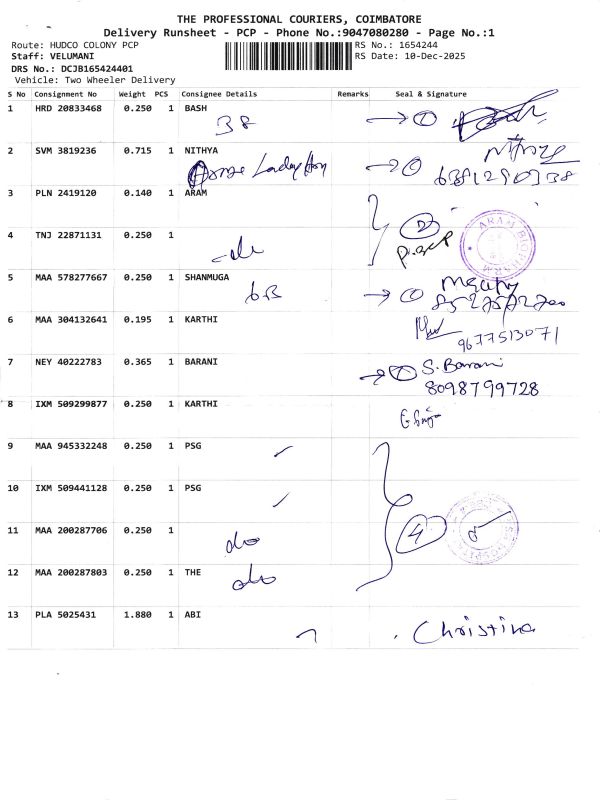 THE PROFESSIONAL COURIERS, COIMBATORE
Delivery Runsheet - PCP - Phone No.:9047080280 - Page No.:1
Route: HUDCO COLONY PCP RS No.: 1654244
Staff: VELUMANI RS Date: 10-Dec-2025
DRS No.: DCJB165424401
Vehicle: Two Wheeler Delivery
S No Consignment No Weight PCS Consignee Details Remarks Seal & Signature
1 HRD 20833468 0.250 1 BASH
38 1
2 SVM 3819236 0.715 1 NITHYA
3 PLN 2419120 0.140 1 ARAM
2
ARAM BIOPHARM
4 TNJ 22871131 0.250 1
do
5 MAA 578277667 0.250 1 SHANMUGA
6B
6 MAA 304132641 0.195 1 KARTHI
9677513071
7 NEY 40222783 0.365 1 BARANI
1 S. Barani
8098799728
8 IXM 509299877 0.250 1 KARTHI
9 MAA 945332248 0.250 1 PSG
10 IXM 509441128 0.250 1 PSG
4
11 MAA 200287706 0.250 1
do
12 MAA 200287803 0.250 1 THE
do
13 PLA 5025431 1.880 1 ABI
Christina